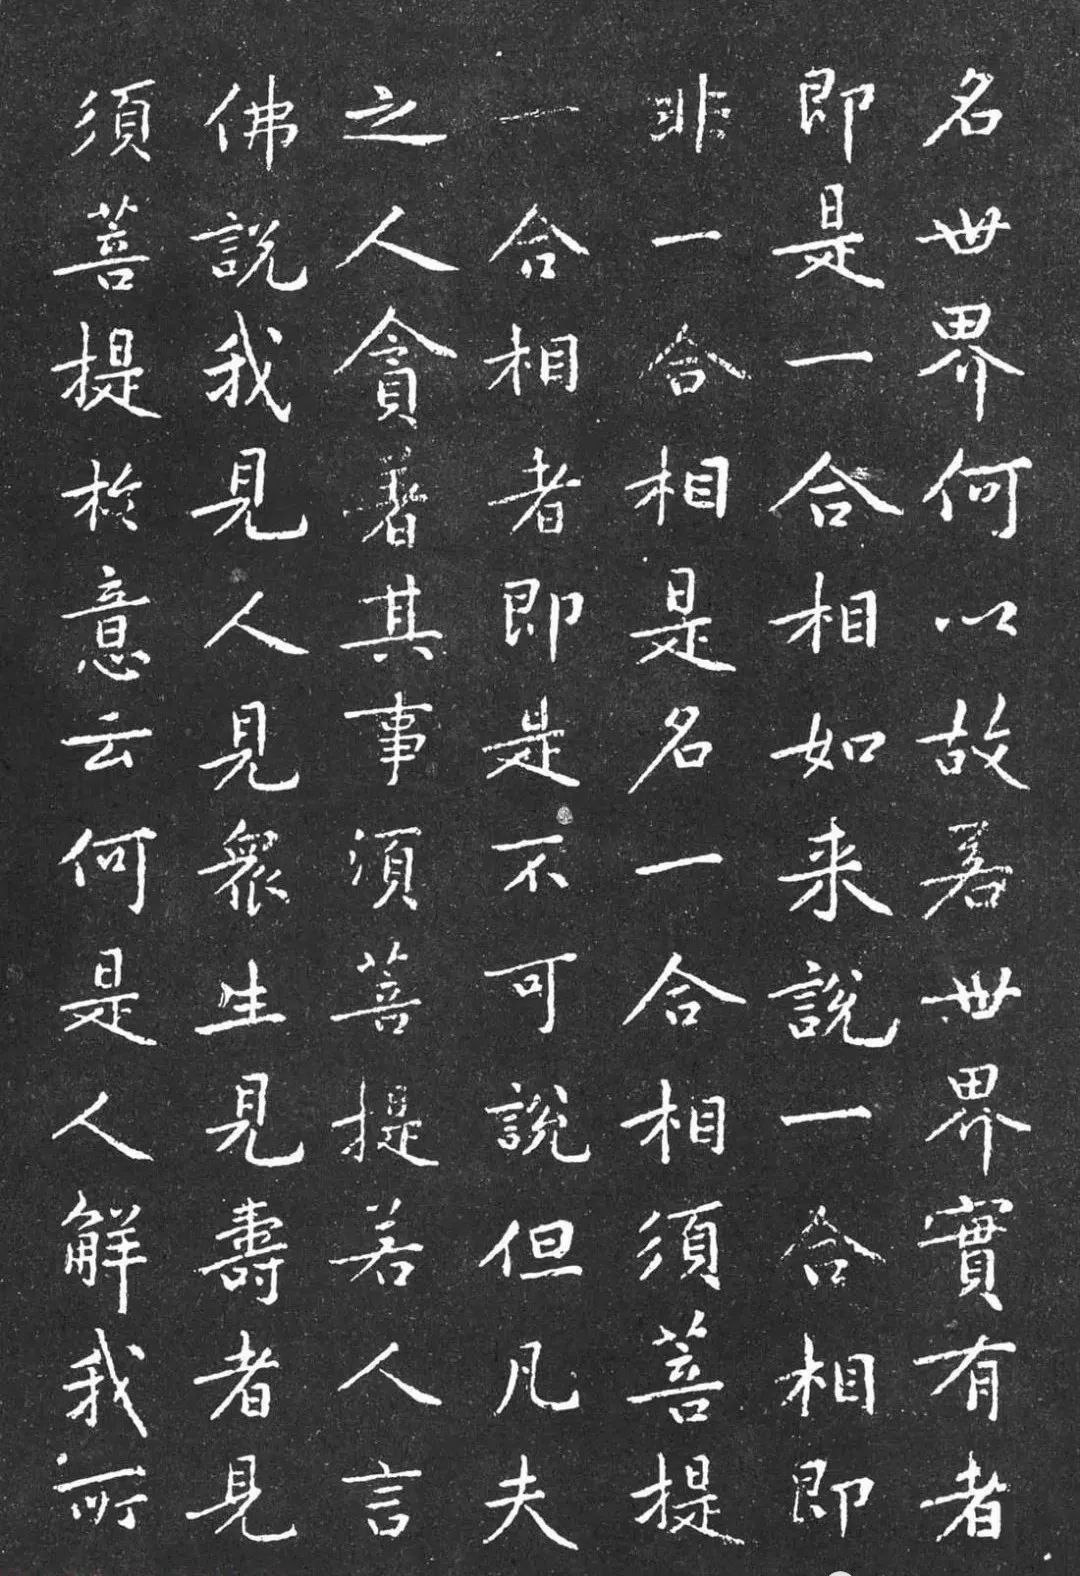 名世界何以故若世界實有者
即是一合相如来說一合相即
非一合相是名一合相須菩提
一合相者即是不可說但凡夫
之人貪著其事須菩提若人言
佛說我見人見衆生見壽者見
須菩提於意云何是人解我所